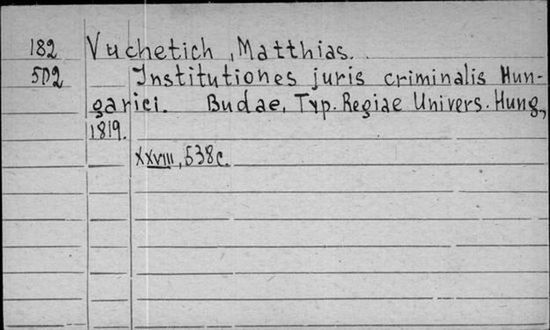 182 Vuchetich, Matthias.
502 Institutiones juris criminalis Hun-
garici. Budae, Typ. Regiae Univers. Hung,
1819.
XXVIII, 538c.